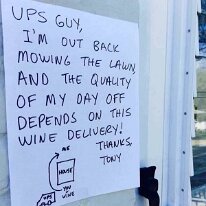 UPS GUY,
I'M OUT BACK
MOWING THE LAWN
AND THE QUALITY
OF MY DAY OFF
DEPENDS ON THIS
WINE DELIVERY!
THANKS,
TONY
ME
HOUSE
YOU
WINE
UPS